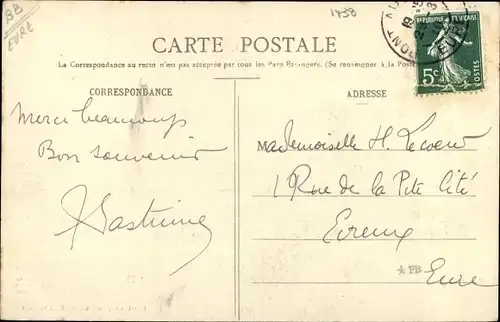 BB
EURE
1438
CARTE POSTALE
La Correspondance au recto n'est pas acceptée par tous les Pays Etrangers. (Se renseigner à la Poste
REPUBLIQUE FRANÇAISE
5c
POSTES
EURE
CORRESPONDANCE
ADRESSE
Merci beaucoup
Bon souvenir
Mademoiselle H. Lecoeur
1 Rue de la Pte Cité
Evreux
Eure
*PB